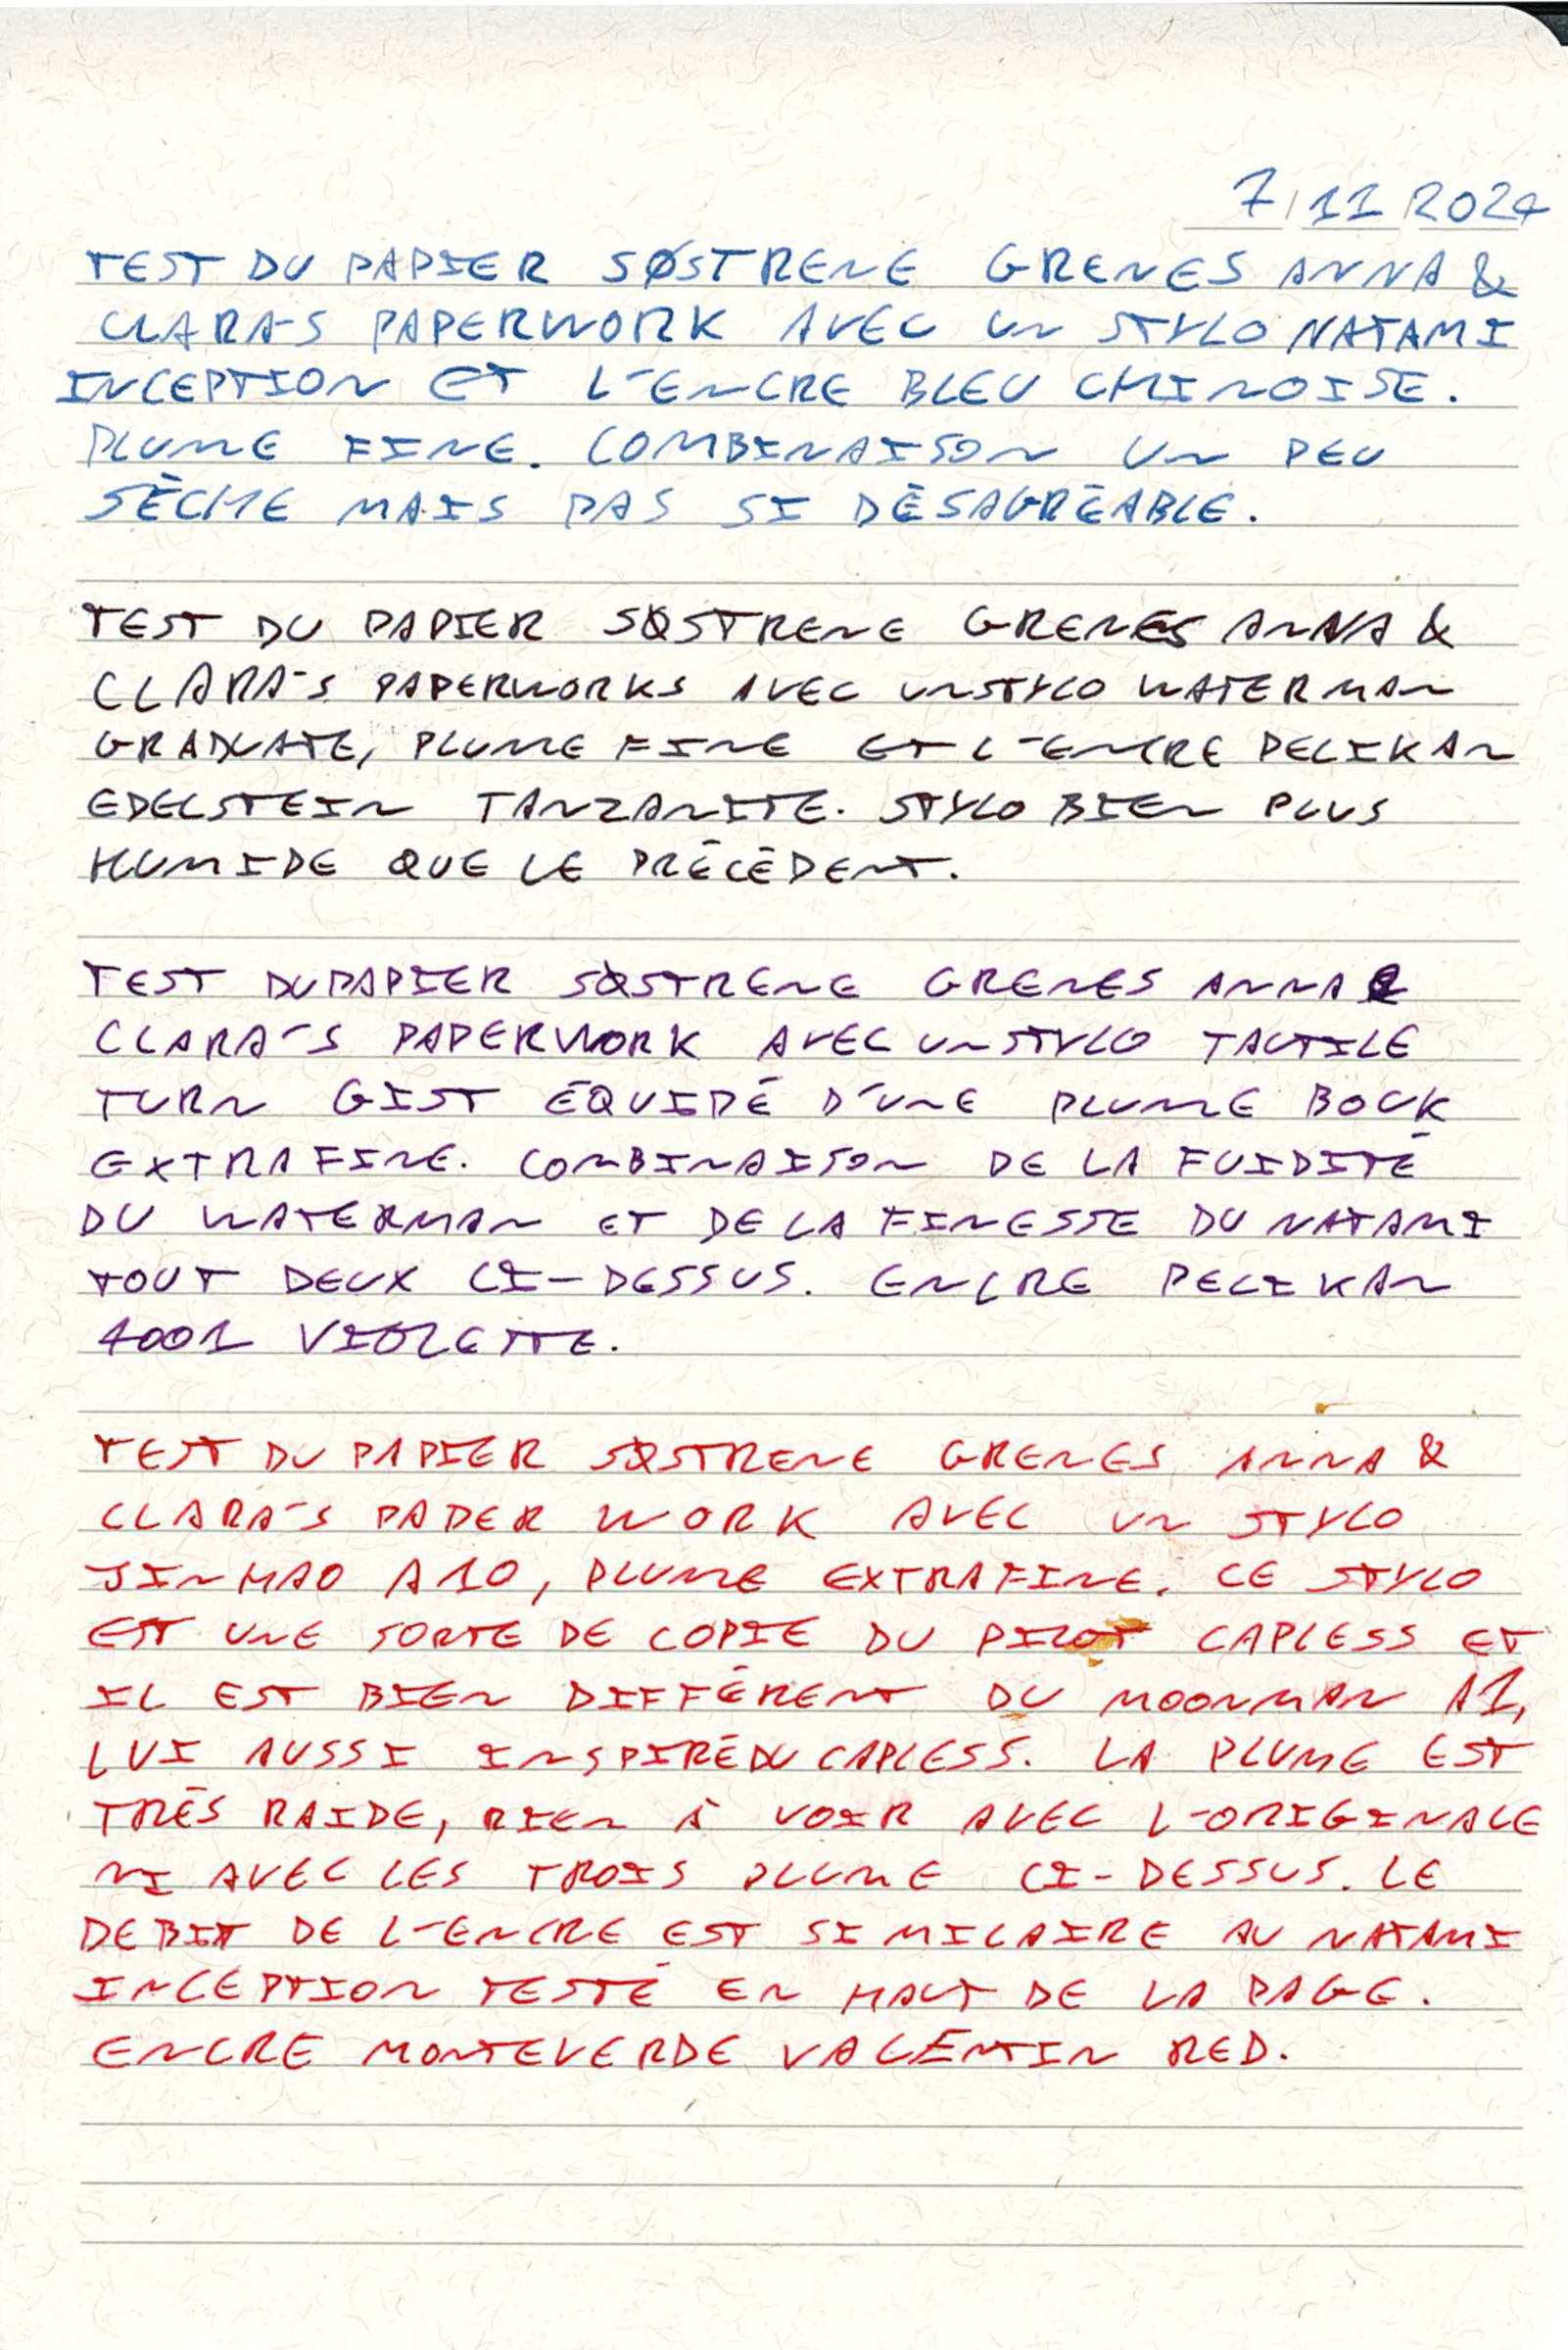 7/11/2024
TEST DU PAPIER SØSTRENE GRENES ANNA &
CLARA'S PAPERWORK AVEC UN STYLO NATAMI
INCEPTION ET L'ENCRE BLEU CHINOISE.
PLUME FINE. COMBINAISON UN PEU
SÈCHE MAIS PAS SI DÉSAGRÉABLE.
TEST DU PAPIER SØSTRENE GRENES ANNA &
CLARA'S PAPERWORKS AVEC UN STYLO WATERMAN
GRADUATE, PLUME FINE ET L'ENCRE PELIKAN
EDELSTEIN TANZANITE. STYLO BIEN PLUS
HUMIDE QUE LE PRÉCÉDENT.
TEST DU PAPIER SØSTRENE GRENES ANNA &
CLARA'S PAPERWORK AVEC UN STYLO TACTILE
TURN GIST ÉQUIPÉ D'UNE PLUME BOCK
EXTRA FINE. COMBINAISON DE LA FUIDITÉ
DU WATERMAN ET DE LA FINESSE DU NATAMI
TOUT DEUX CI-DESSUS. ENCRE PELIKAN
4001 VIOLETTE.
TEST DU PAPIER SØSTRENE GRENES ANNA &
CLARA'S PAPER WORK AVEC UN STYLO
JINHAO A10, PLUME EXTRAFINE. CE STYLO
EST UNE SORTE DE COPIE DU PILOT CAPLESS ET
IL EST BIEN DIFFÉRENT DU MOONMAN A1,
LUI AUSSI INSPIRÉ DU CAPLESS. LA PLUME EST
TRÈS RAIDE, RIEN À VOIR AVEC L'ORIGINALE
NI AVEC LES TROIS PLUME CI-DESSUS. LE
DEBIT DE L'ENCRE EST SIMILAIRE AU NATAMI
INCEPTION TESTÉ EN HAUT DE LA PAGE.
ENCRE MONTEVERDE VALENTIN RED.